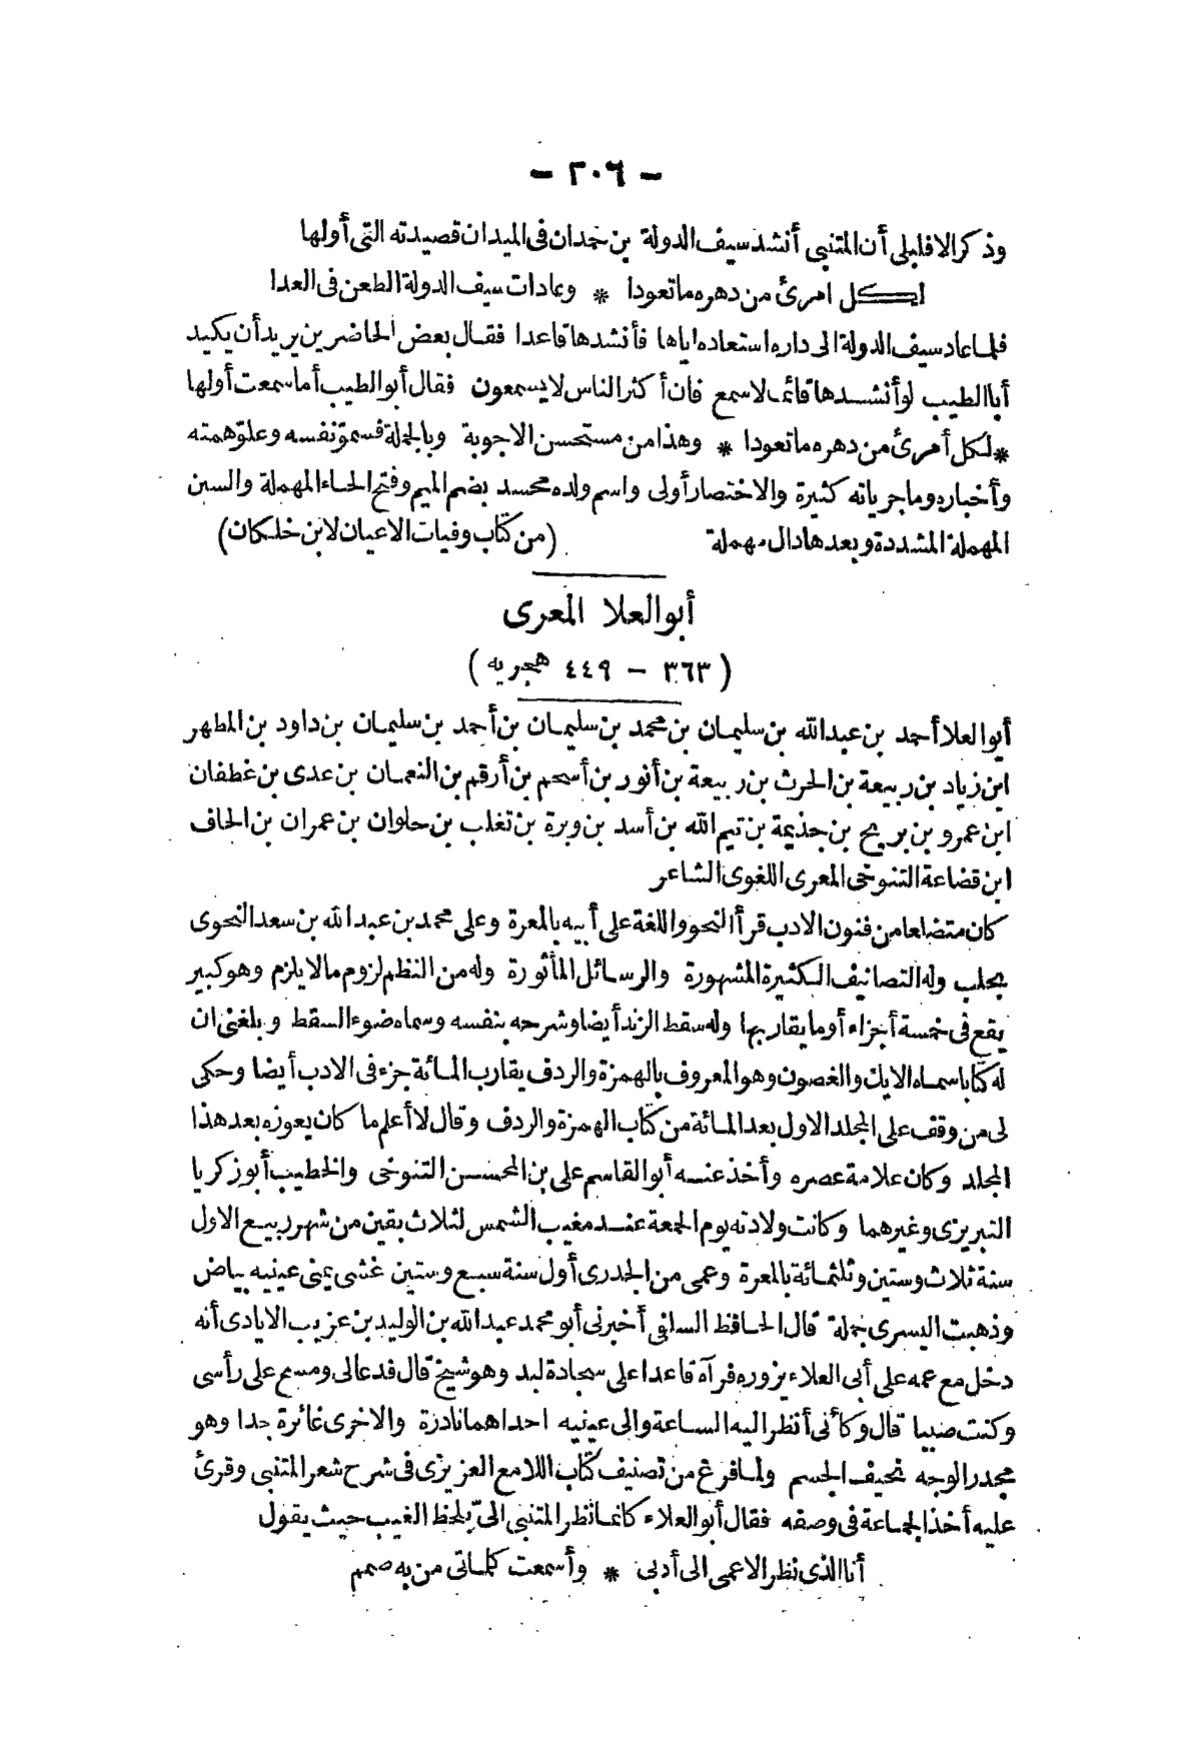 - ٢٠٦ -
وذكر الافليلى أن المتنبى أنشد سيف الدولة بن حمدان فى الميدان قصيدته التى أولها
لكل امرئ من دهره ما تعودا * وعادات سيف الدولة الطعن فى العدا
فلما عاد سيف الدولة الى داره استعاده اياها فأنشدها قاعدا فقال بعض الحاضرين يريد أن يكيد
أبا الطيب لو أنشدها قائما لاسمع فان أكثر الناس لا يسمعون فقال أبو الطيب أما سمعت أولها
* لكل أمرئ من دهره ما تعودا * وهذا من مستحسن الاجوبة وبالجملة فسمو نفسه وعلو همته
وأخباره وماجرياته كثيرة والاختصار أولى واسم ولده محسد بضم الميم وفتح الحاء المهملة والسين
المهملة المشددة وبعدها دال مهملة (من كتاب وفيات الاعيان لابن خلكان)
أبو العلا المعرى
(٣٦٣ - ٤٤٩ هجريه)
أبو العلا أحمد بن عبد الله بن سليمان بن محمد بن سليمان بن أحمد بن سليمان بن داود بن المطهر
ابن زياد بن ربيعة بن الحرث بن ربيعة بن أنور بن أسحم بن أرقم بن النعمان بن عدى بن غطفان
ابن عمرو بن بريح بن جذيمة بن تيم الله بن أسد بن وبرة بن تغلب بن حلوان بن عمران بن الحاف
ابن قضاعة التنوخى المعرى اللغوى الشاعر
كان متضلعا من فنون الادب قرأ النحو واللغة على أبيه بالمعرة وعلى محمد بن عبد الله بن سعد النحوى
بحلب وله التصانيف الكثيرة المشهورة والرسائل المأثورة وله من النظم لزوم ما لا يلزم وهو كبير
يقع فى خمسة أجزاء أو ما يقاربها وله سقط الزند أيضا وشرحه بنفسه وسماه ضوء السقط وبلغنى ان
له كتابا سماه الايك والغصون وهو المعروف بالهمزة والردف يقارب المائة جزء فى الادب أيضا وحكى
لى من وقف على المجلد الاول بعد المائة من كتاب الهمزة والردف وقال لا أعلم ما كان يعوزه بعد هذا
المجلد وكان علامة عصره وأخذ عنه أبو القاسم على بن المحسن التنوخى والخطيب أبو زكريا
التبريزى وغيرهما وكانت ولادته يوم الجمعة عند مغيب الشمس لثلاث بقين من شهر ربيع الاول
سنة ثلاث وستين وثلثمائة بالمعرة وعمى من الجدرى أول سنة سبع وستين غشى يمنى عينيه بياض
وذهبت اليسرى جملة قال الحافظ السلفى أخبرنى أبو محمد عبد الله بن الوليد بن عزيب الايادى أنه
دخل مع عمه على أبى العلاء يزوره فرآه قاعدا على سجادة لبد وهو شيخ قال فدعا لى ومسح على رأسى
وكنت صبيا قال وكأنى أنظر اليه الساعة والى عينيه احداهما نادرة والاخرى غائرة جدا وهو
مجدر الوجه نحيف الجسم ولما فرغ من تصنيف كتاب اللامع العزيزى فى شرح شعر المتنبى وقرئ
عليه أخذ الجماعة فى وصفه فقال أبو العلاء كأنما نظر المتنبى الىّ بلحظ الغيب حيث يقول
أنا الذى نظر الاعمى الى أدبى * وأسمعت كلماتى من به صمم